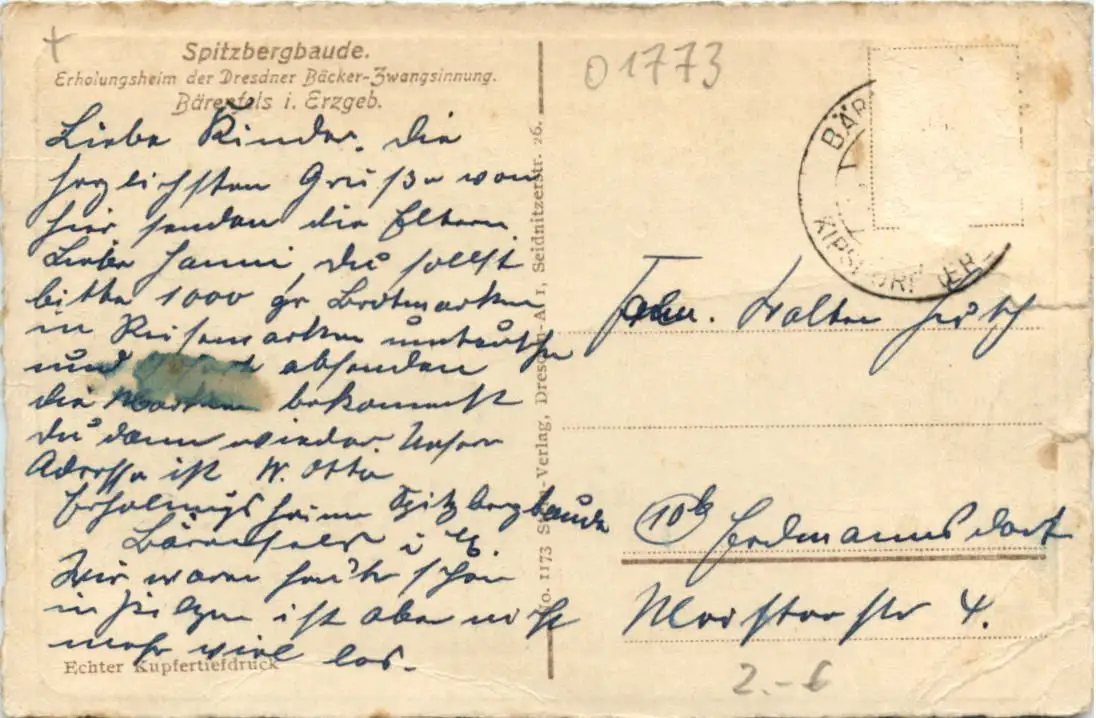 Spitzbergbaude.
Erholungsheim der Dresdner Bäcker-Zwangsinnung.
Bärenfels i. Erzgeb.
Liebe Kinder, die
herzlichsten Grüße von
hier senden die Eltern
Liebe Hanni, du sollst
bitte 1000 gr Brotmarken
in Reisemarken umtauschen
und absenden
die Marken bekommst
du dann wieder. Unsere
Adresse ist W. Otto
Erholungsheim Spitzbergbaude
Bärenfels i. E.
Wir waren heute schon
in ist aber nicht
mehr viel los.
Echter Kupfertiefdruck
No. 1173 Verlag, Dresden-A. 1, Seidnitzerstr. 26.
01773
BÄR
KIPSDORF ERZ
Fam. Walter
10b Herdmannsdorf
str 4.
2.-